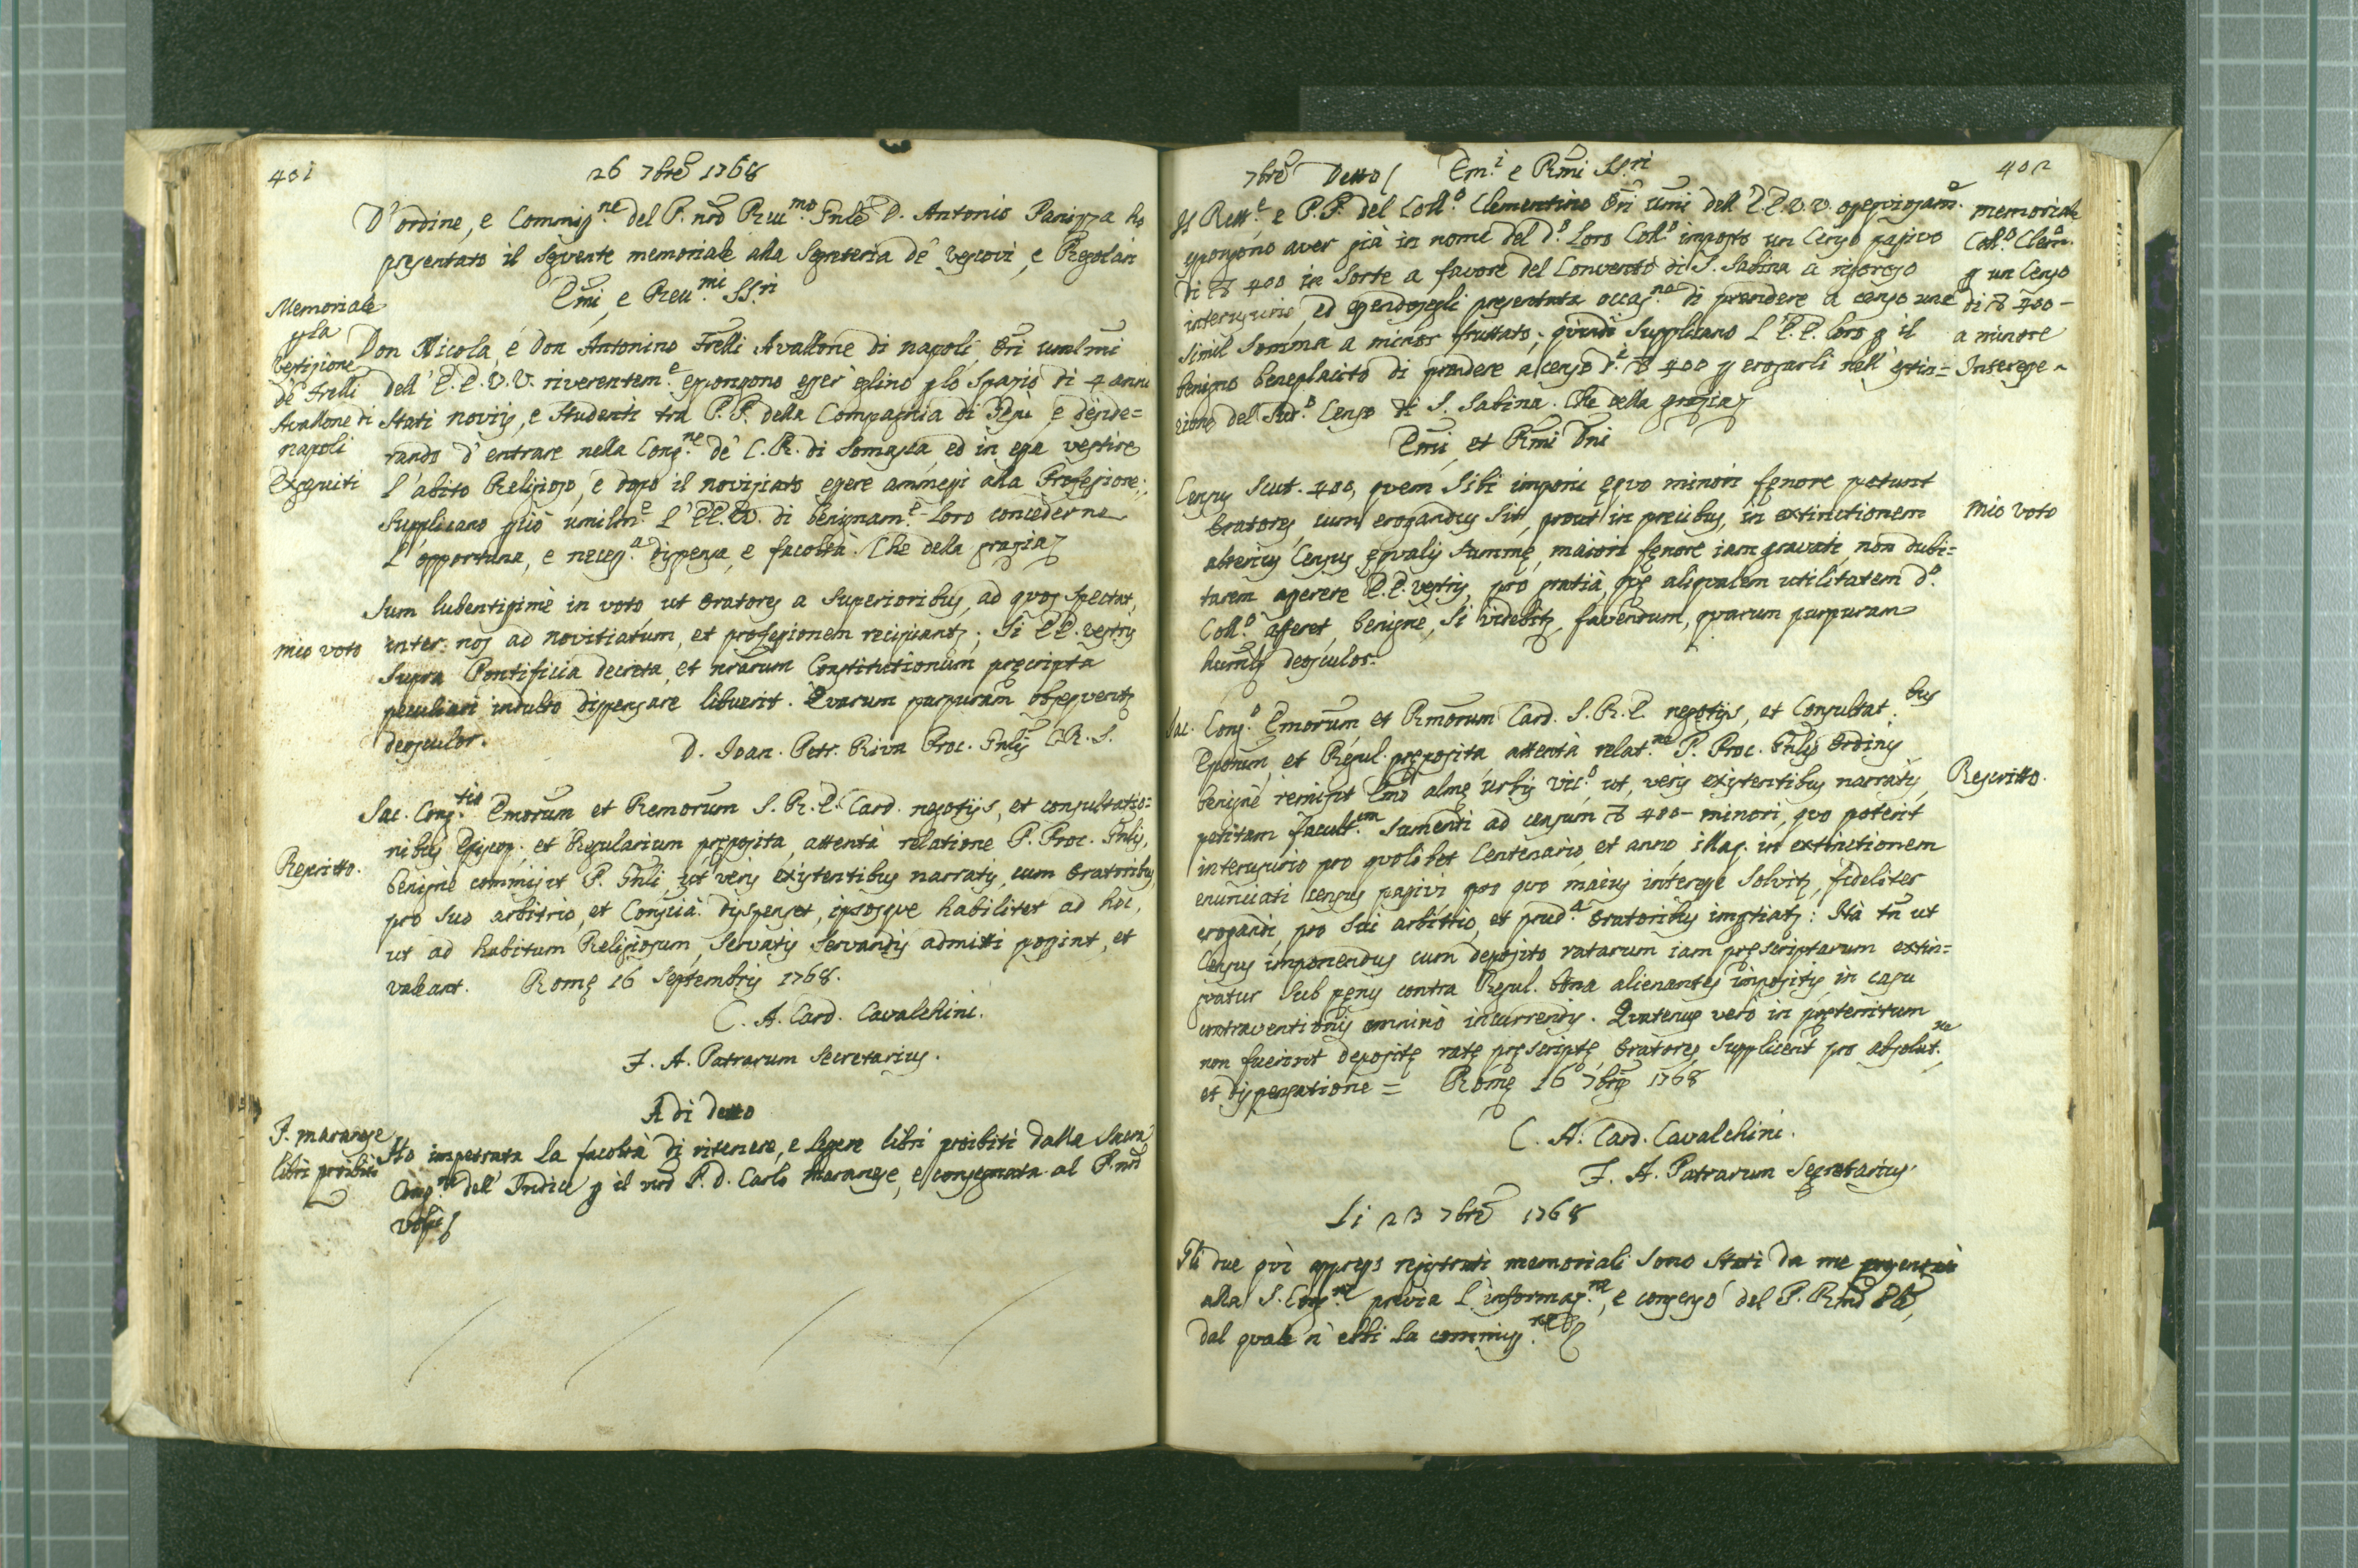 401
26 7bre 1768
D'ordine, e Commiss.ne del P. nro Reu.mo Gnle D. Antonio Panizza ho
presentato il seguente memoriale alla Segreteria de' Vescovi, e Regolari
Emi, e Reu.mi SS.ri
Memoriale
p la
Vestizione
de' Frelli
Avallone di
napoli
Eseguiti
Don Nicola, e Don Antonino Frelli Avallone di napoli, Ori umlmi
dell' E.E. V.V. riverentem.e espongono esser eglino p lo spazio di 4 anni
stati novizj, e studenti tra P.P. della Compagnia di Gesù, e deside=
rando d'entrare nella Cong.ne de' C.R. di Somasca, ed in essa vestire
l'abito Religioso, e dopo il noviziato essere ammessi alla Professione;
Supplicano p ciò umilm.e l'EE.VV. di benignam.e loro concederne
l'opportuna, e necess.a dispensa, e facoltà. Che della grazia
mio voto
Sum lubentissime in voto, ut Oratores a Superioribus, ad quos spectat,
inter nos ad novitiatum, et professionem recipiantr; si EE. vestris
supra Pontificia decreta, et nrarum Constitutionum pręscripta
peculiari indulto dispensare libuerit. Quarum purpuram obsequentr
deosculor.
D. Ioan. Petr. Riva Proc. Gnlis C.R.S.
Rescritto.
Sac. Cong.tio Emorum et Remorum S.R.E. Card. negotijs, et consultatio=
nibus Episcop. et Regularium pręposita, attentà relatione P. Proc. Gnlis,
benignè commisit P. Gnli, ut veris existentibus narratis, cum Oratoribus
pro suo arbitrio, et Conscià dispenset, ipsosque habilitet ad hoc,
ut ad habitum Religiosum, servatis servandis admitti possint, et
valeant. Romę 16 Septembris 1768.
C. A. Card. Cavalchini.
F. A. Patrarum Secretarius.
A di detto
P. Maranese
libri proibiti
Ho impetrata la facoltà di ritenere, e legere libri proibiti dalla Sacra
Cong.ne dell' Indice p il nro P. D. Carlo Maranese, e consegnata al P. nro
402
7bre Detto Em.i e Rmi SS.ri
Il Rett.e e P.P. del Coll.o Clementino Ori umi dell' E.E. V.V. ossequiosam.
espongono aver già in nome del d.o loro Coll.o imposto un Censo passivo
di ∇ 400 in sorte a favore del Convento di S. Sabina a
interusurio, ed essendosegli presentata occas.ne di prendere a censo una
simil somma a minor fruttato; quindi supplicano l'E.E. loro p il
benigno beneplacito di prendere a censo d.i ∇ 400 p erogarli nell' estin=
zione del sud.o Censo di S. Sabina. Che della grazia
memoriale
Coll.o Clem.
p un Censo
di ∇ 400 -
a minore
Interesse
Emi, et Rmi Dni
mio voto
Census scut. 400, quem sibi imponi ęquo minori fęnore petunt
Oratores, cum erogandus sit, prout in precibus, in extinctionem
alterius Census ęqualis summę, maiori fęnore iam gravati, non dubi=
tarem asserere E.E. vestris, pro gratià, quę aliqualem utilitatem d.o
Coll.o afferet, benigne, si videbitr, faventum, quarum purpuram
humilr deosculor.
Rescritto.
Sac. Cong.o Emorum, et Rmorum Card. S.R.E. negotijs, et Consultat.bus
Eporum, et Regul. pręposita attentà relat.ne P. Proc. Gnlis Ordinis
benignè remisit Emo almę Urbis Vic.o, ut, veris existentibus narratis,
petitam facult.em sumendi ad censum ∇ 400 - minori, quo poterit
interusurio pro quolibet Centenario, et anno, illaq. in extinctionem
enunciati census passivi pro quo maius interesse solvitr, fideliter
erogandi, pro sui arbitrio, et prud.a Oratoribus imptiatr: Ità tn ut
Census imponendus cum deposito ratarum iam pręscriptarum extin=
guatur sub pęnis contra Regul. bona alienantes impositis in casu
contraventionis omninò incurrendis. Quatenus verò in pręteritum
non fuerint depositę ratę pręscriptę, Oratores supplicent pro absolut.ne
et dispensatione = Romę 16 7bris 1768
C. A. Card. Cavalchini.
F. A. Patrarum Segretarius
Li 23 7bre 1768
Gli due quì appresso registrati memoriali sono stati da me presentati
alla S. Cong.ne previa l'informaz.ne, e consenso del P. Rmo
dal quale n' ebbi la commiss.ne